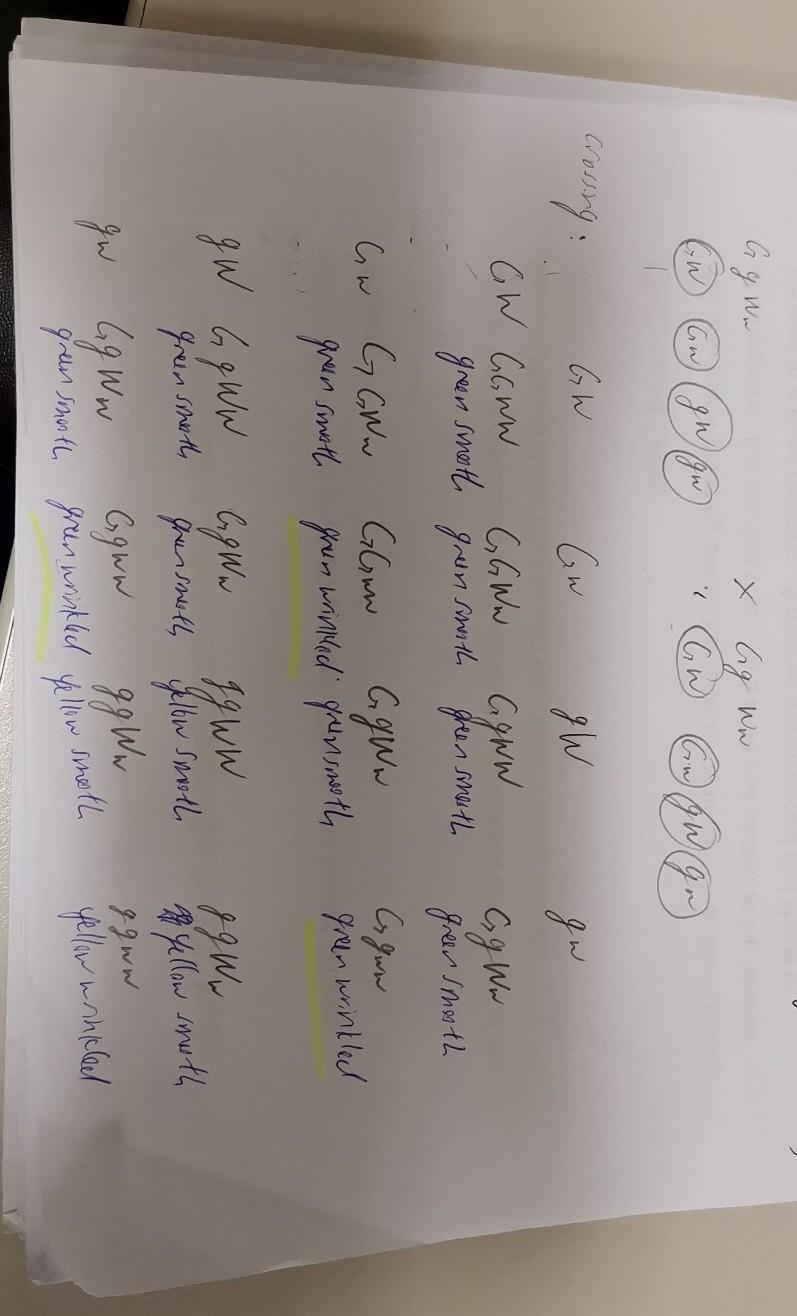 GgWw × GgWw
GW Gw gW gw GW Gw gW gw
Crossing:
GW Gw gW gw
GW GGWW GGWw GgWW GgWw
green smooth green smooth green smooth green smooth
Gw GGWw GGww GgWw Ggww
green smooth green wrinkled green smooth green wrinkled
gW GgWW GgWw ggWW ggWw
green smooth green smooth yellow smooth yellow smooth
gw GgWw Ggww ggWw ggww
green smooth green wrinkled yellow smooth yellow wrinkled